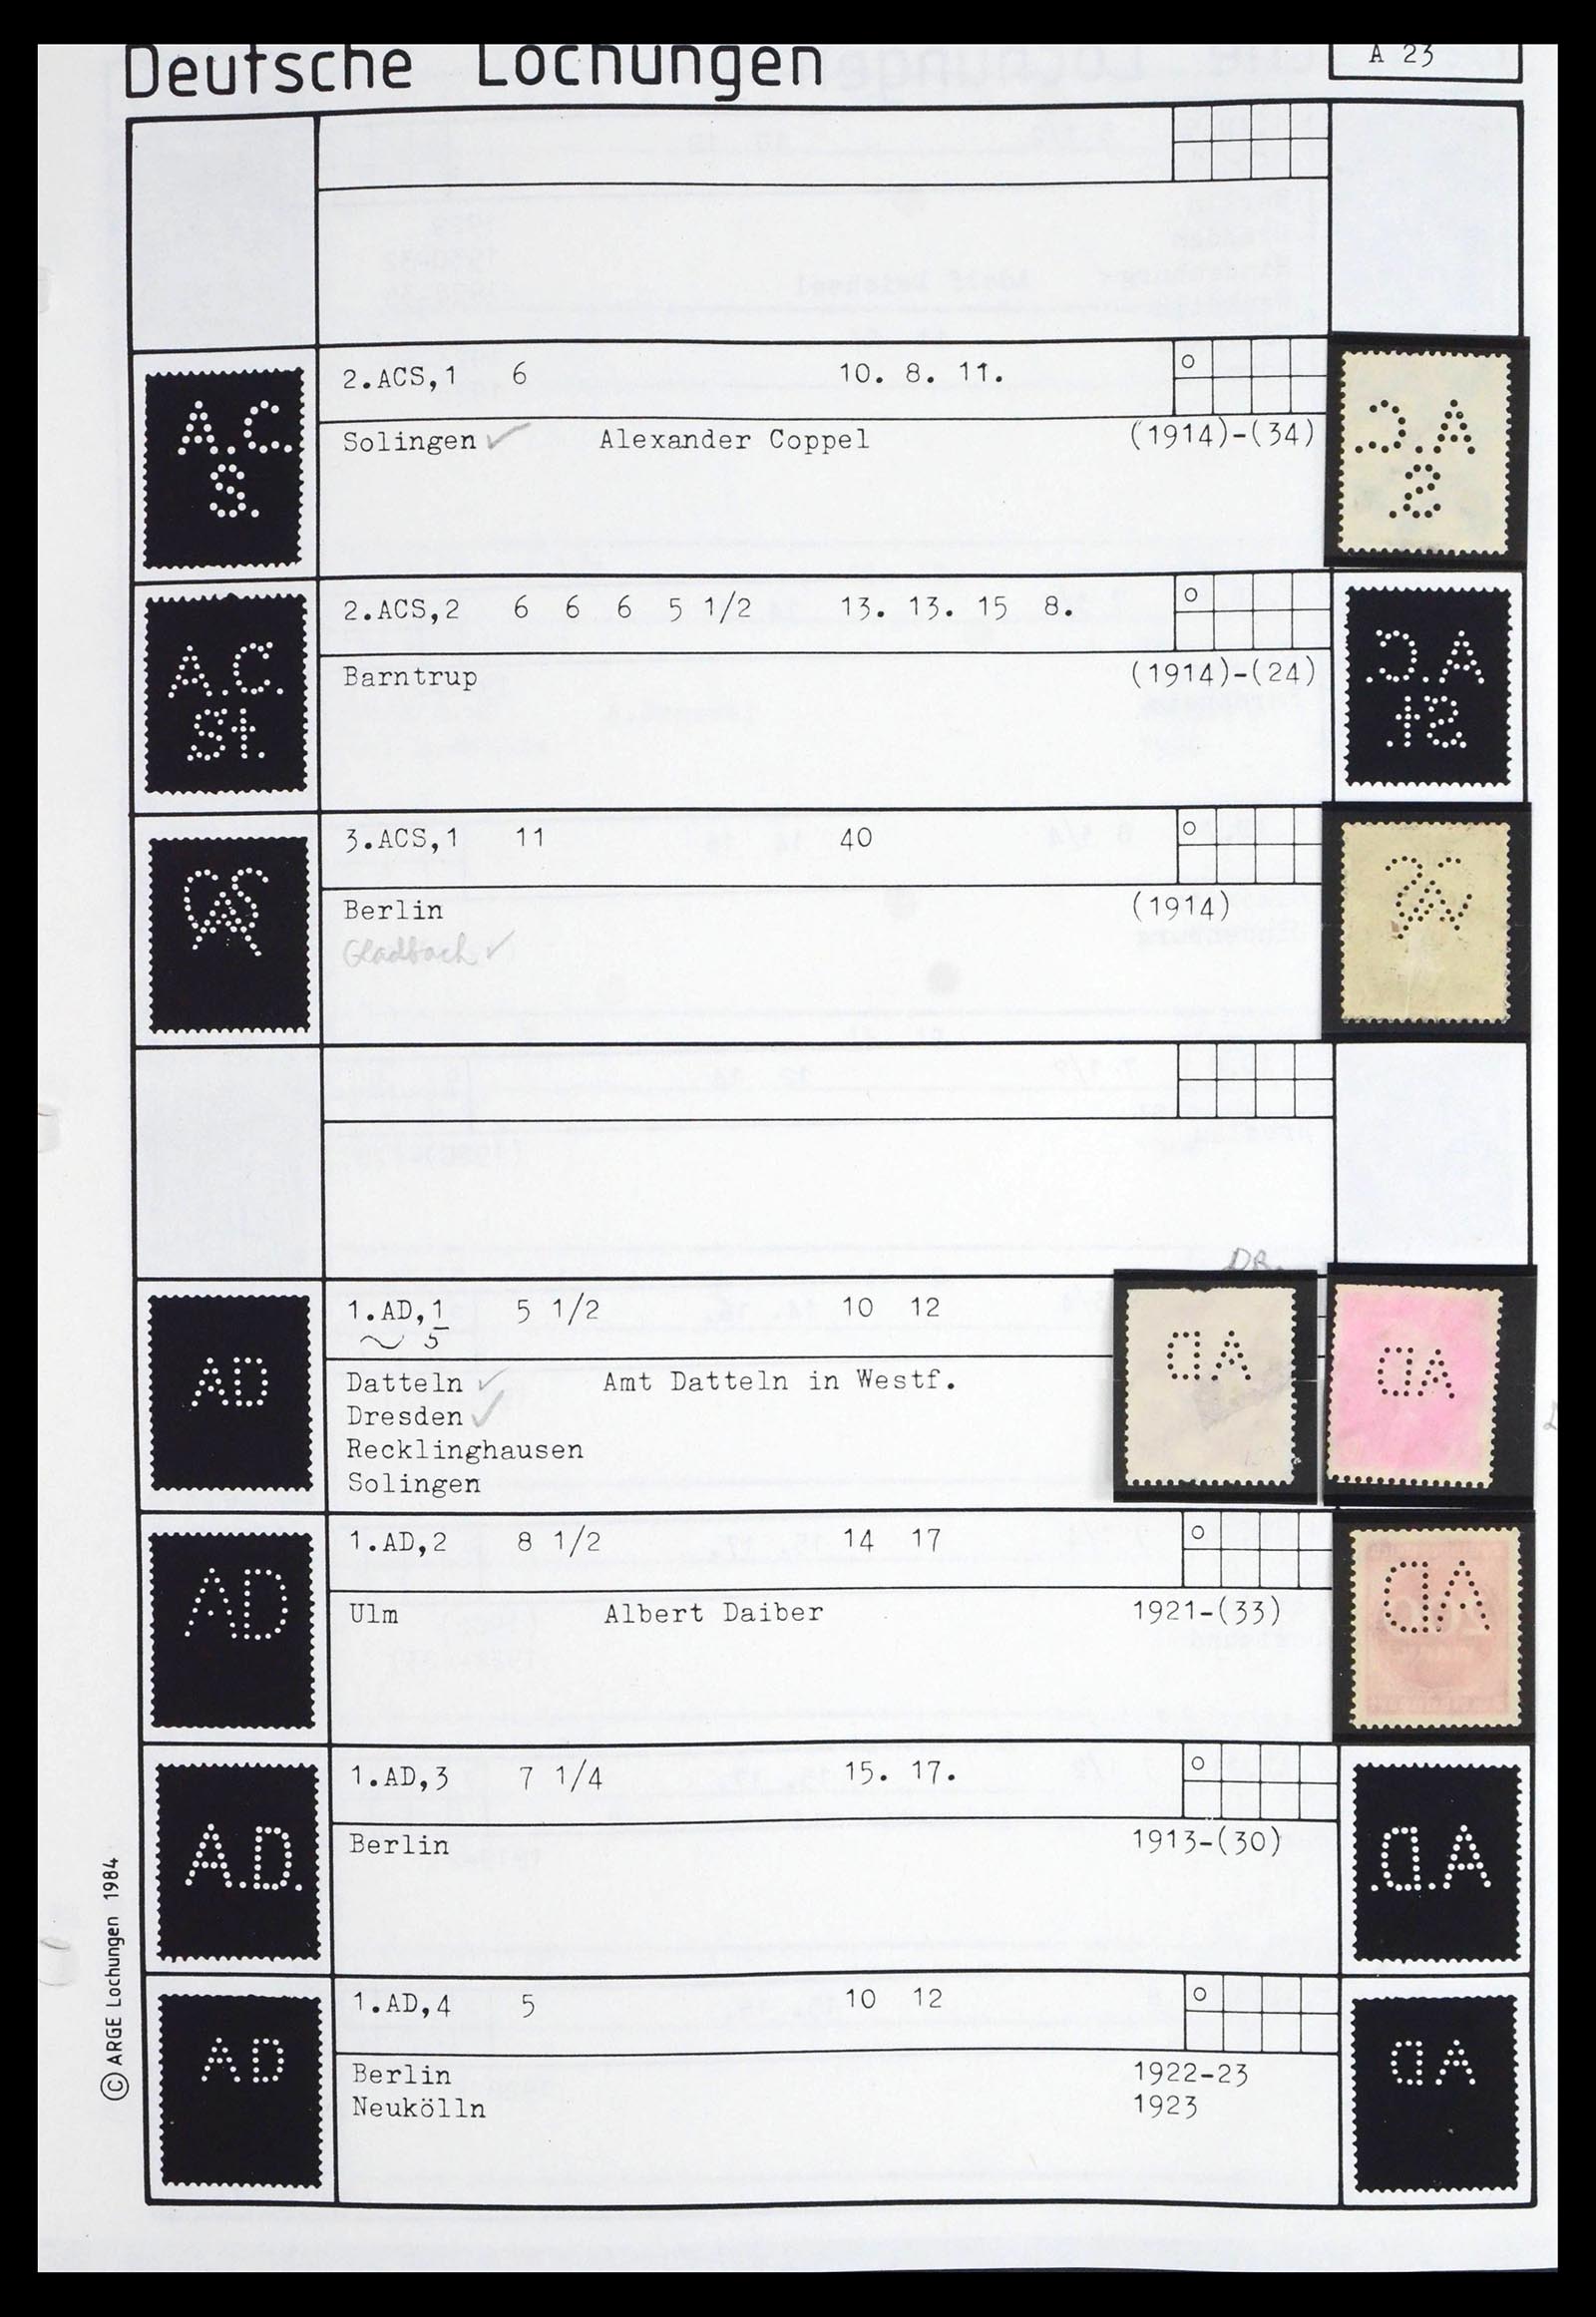 Deutsche Lochungen
A 23
2.ACS,1 6 10. 8. 11. o
A.C.
S.
Solingen ✓ Alexander Coppel (1914)-(34)
2.ACS,2 6 6 6 5 1/2 13. 13. 15 8. o
A.C.
St.
Barntrup (1914)-(24)
3.ACS,1 11 40 o
Berlin (1914)
Gladbach ✓
DR.
1.AD,1 5 1/2 10 12
5
AD
Datteln ✓ Amt Datteln in Westf.
Dresden ✓
Recklinghausen
Solingen
1.AD,2 8 1/2 14 17 o
AD
Ulm Albert Daiber 1921-(33)
1.AD,3 7 1/4 15. 17. o
A.D.
Berlin 1913-(30)
1.AD,4 5 10 12 o
AD
Berlin 1922-23
Neukölln 1923
© ARGE Lochungen 1984